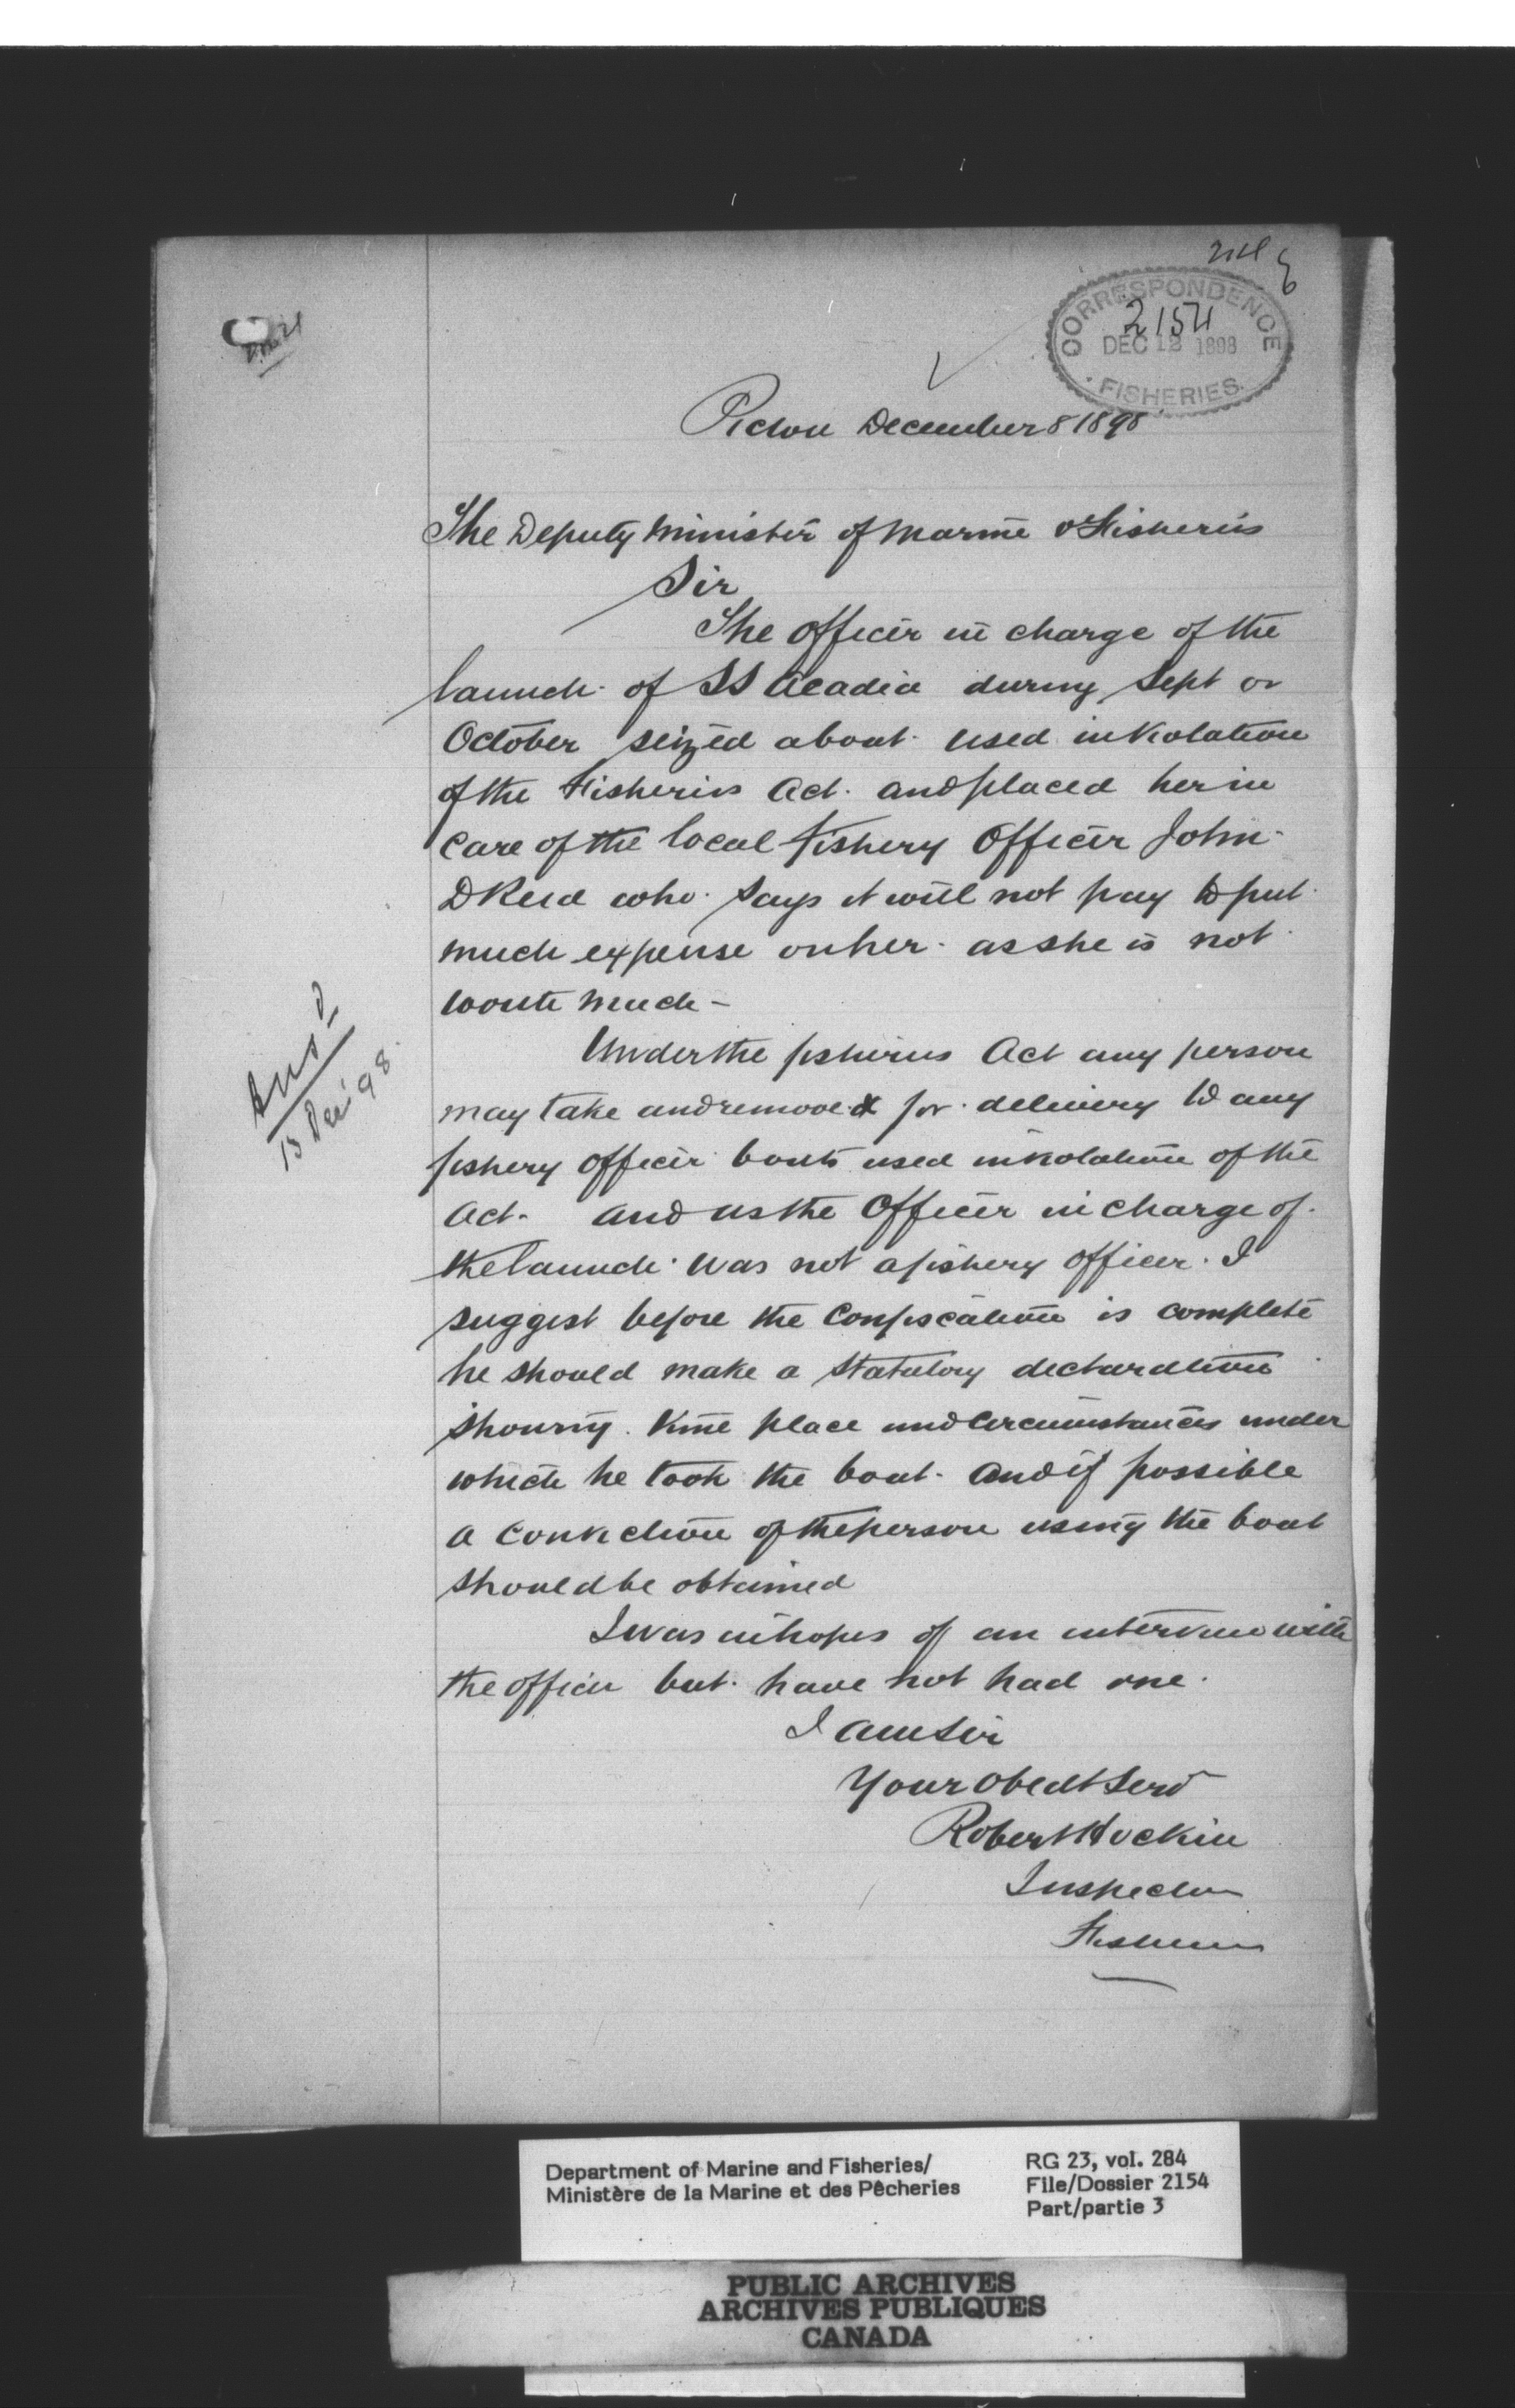 CORRESPONDENCE
2154
DEC 12 1898
FISHERIES.
Pictou December 8 1898
The Deputy Minister of Marine & Fisheries
Sir
The officer in charge of the
launch of SS Acadia during Sept or
October seized a boat used in violation
of the Fisheries Act. and placed her in
care of the local fishery Officer John
D Reid who says it will not pay to put
much expense on her as she is not
worth much -
Under the fisheries Act any person
may take and remove for delivery to any
fishery officer boats used in violation of the
Act. and as the Officer in charge of
the launch was not a fishery officer. I
suggest before the Confiscation is complete
he should make a statutory declaration
showing time place and circumstances under
which he took the boat. and if possible
a conviction of the person using the boat
should be obtained
I was in hopes of an interview with
the officer but have not had one.
I am Sir
Your obedt Servt
Robert Hockin
Inspector
Fisheries
Ansd
13 Dec '98.
Department of Marine and Fisheries/
Ministère de la Marine et des Pêcheries
RG 23, vol. 284
File/Dossier 2154
Part/partie 3
PUBLIC ARCHIVES
ARCHIVES PUBLIQUES
CANADA